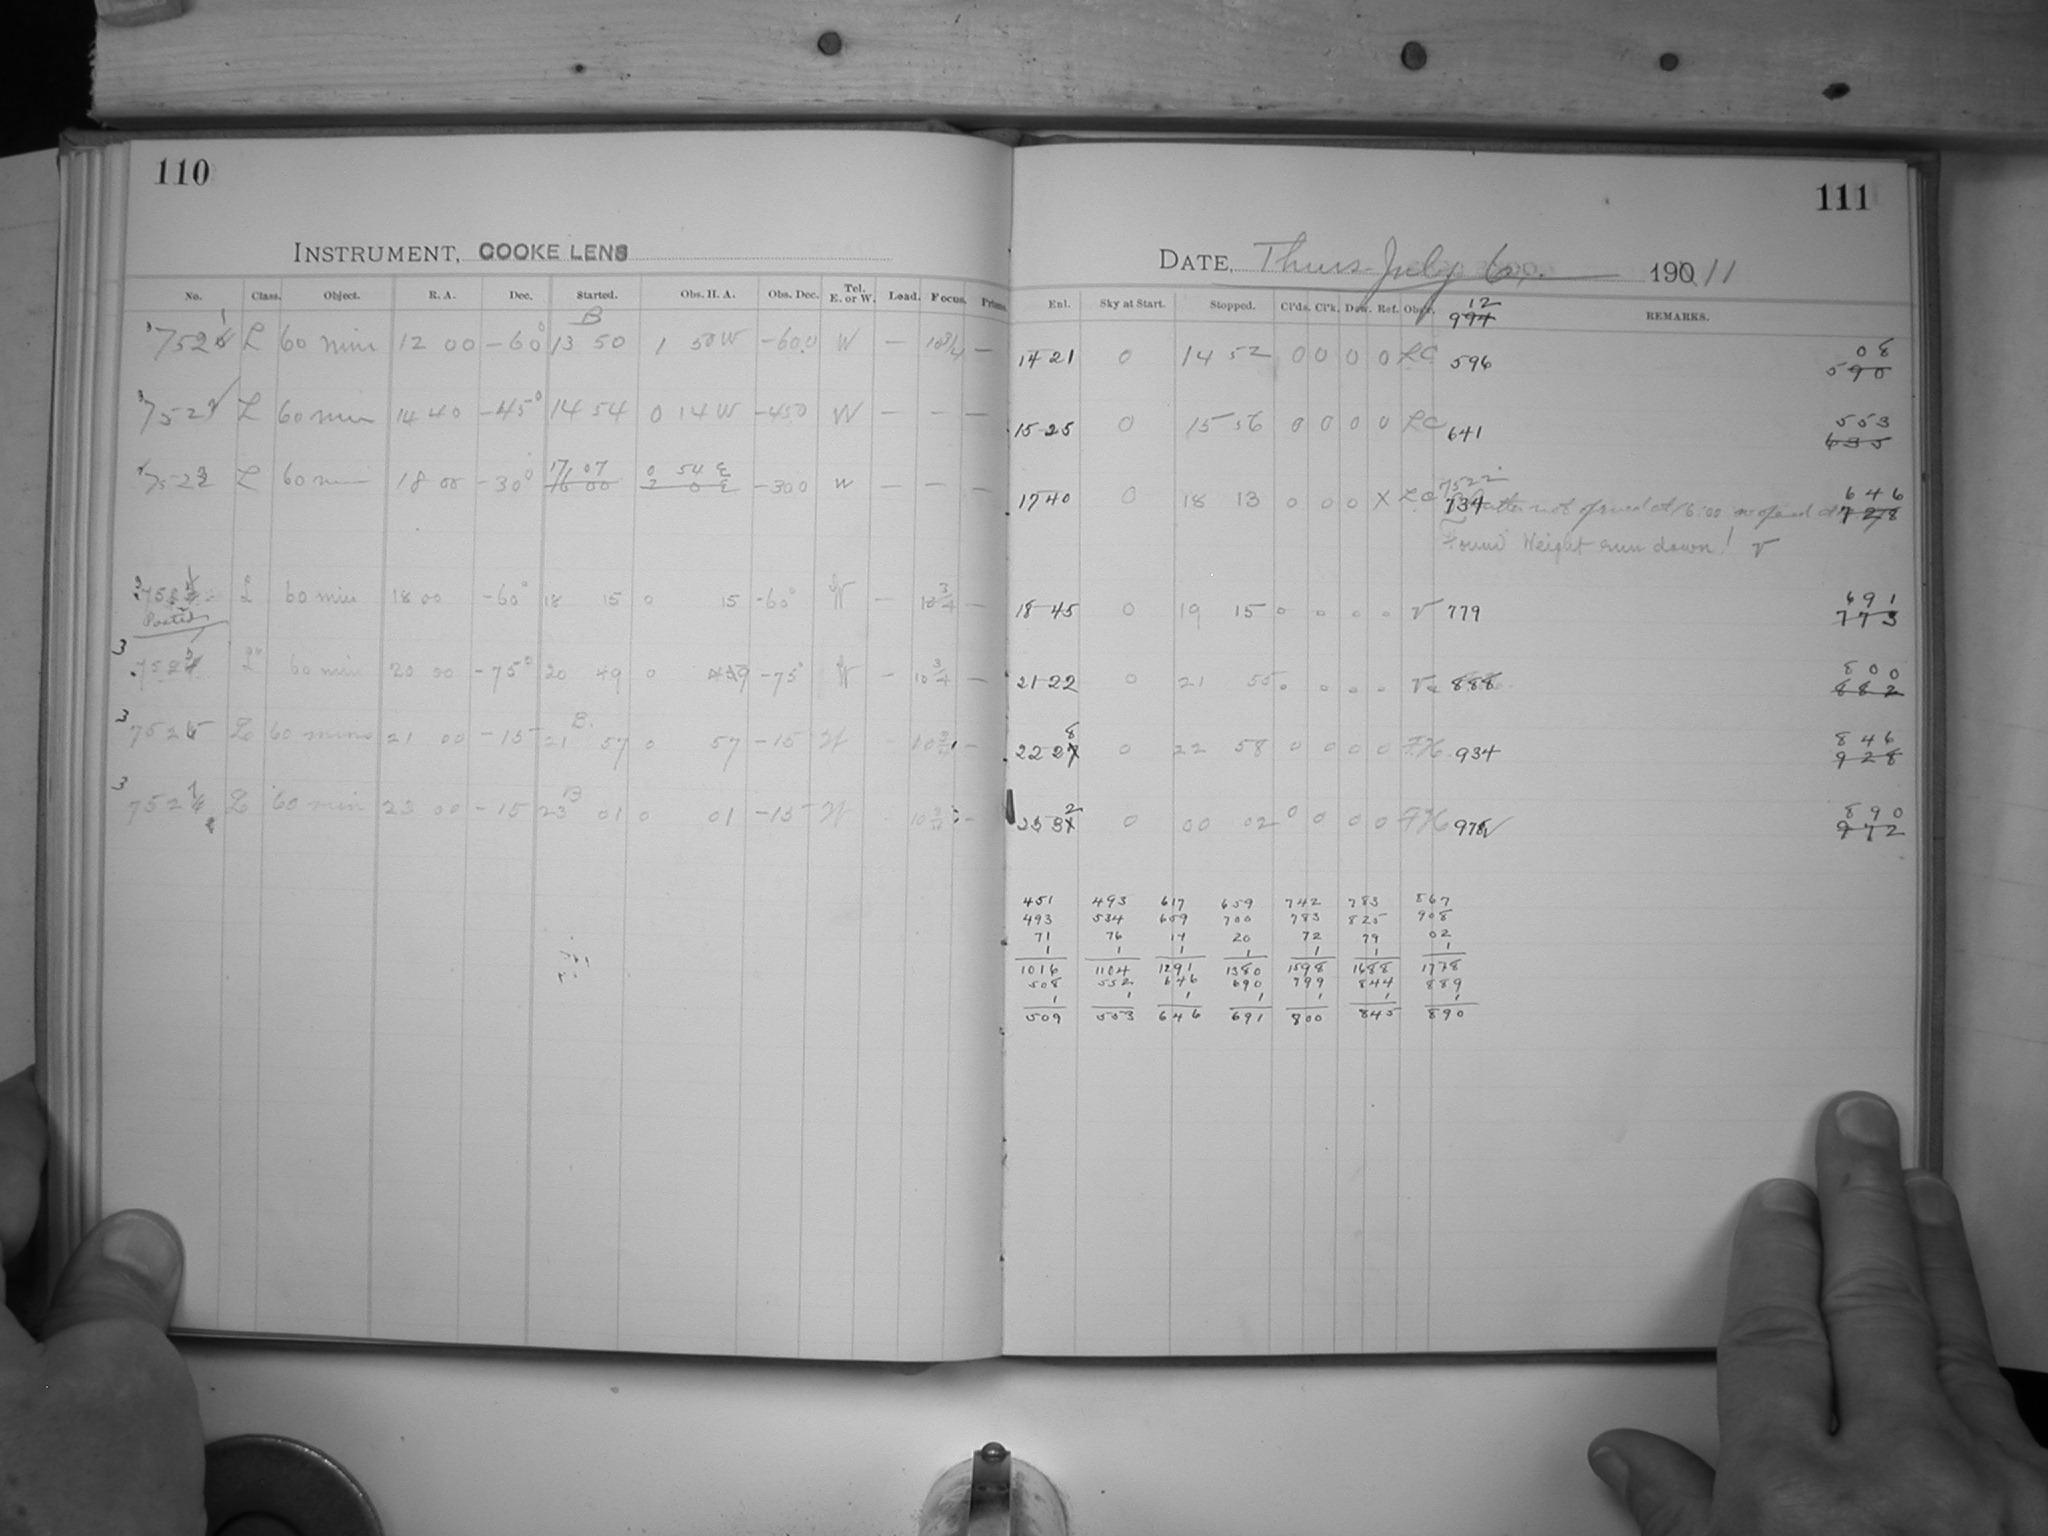 110
INSTRUMENT, COOKE LENS
No. Class. Object. R. A. Dec. Started. Obs. H. A. Obs. Dec. Tel. E. or W. Load. Focus. Prisms.
B
7521 L 60 min 12 00 -60° 13 50 1 50 W -60.0 W — 10 3/4 —
7522 L 60 min 14 40 -45° 14 54 0 14 W -450 W — — —
17 07 0 54 E
7523 L 60 min 18 00 -30° 16 00 2 0 E -300 W — — —
60 min 18 00 -60° 18 15 0 15 -60° W — 10 3/4 —
Posted
3 60 min 20 00 -75° 20 49 0 49 -75° W — 10 3/4 —
B.
3 752 60 min 21 00 -15 21 57 0 57 -15 W 10 —
B
3 752 60 min 23 00 -15 23 01 0 01 -15 W 10 —
111
DATE, Thurs. July 6, 1911
Enl. Sky at Start. Stopped. Cl'ds. Cl'k. Dew. Ref. Obs'r. REMARKS.
12
994
14 21 0 14 52 0 0 0 0 LC 596
08
590
15 25 0 15 56 0 0 0 0 LC 641
553
635
7522
17 40 0 18 13 0 0 0 X LC 734 Shutter not opened at 16:00 reopened
646
728
Found Weight run down! V
18 45 0 19 15 0 0 0 0 V 779
691
773
21 22 0 21 55 0 0 0 0 V 888
800
882
22 28 0 22 58 0 0 0 0 F.H. 934
846
928
23 32 0 00 02 0 0 0 0 F.H. 978
890
972
451 493 617 659 742 783 867
493 534 659 700 783 825 908
71 76 14 20 72 79 02
1 1 1 1 1 1 1
1016 1104 1291 1380 1598 1688 1778
508 552 646 690 799 844 889
1 1 1 1 1 1 1
509 553 646 691 800 845 890